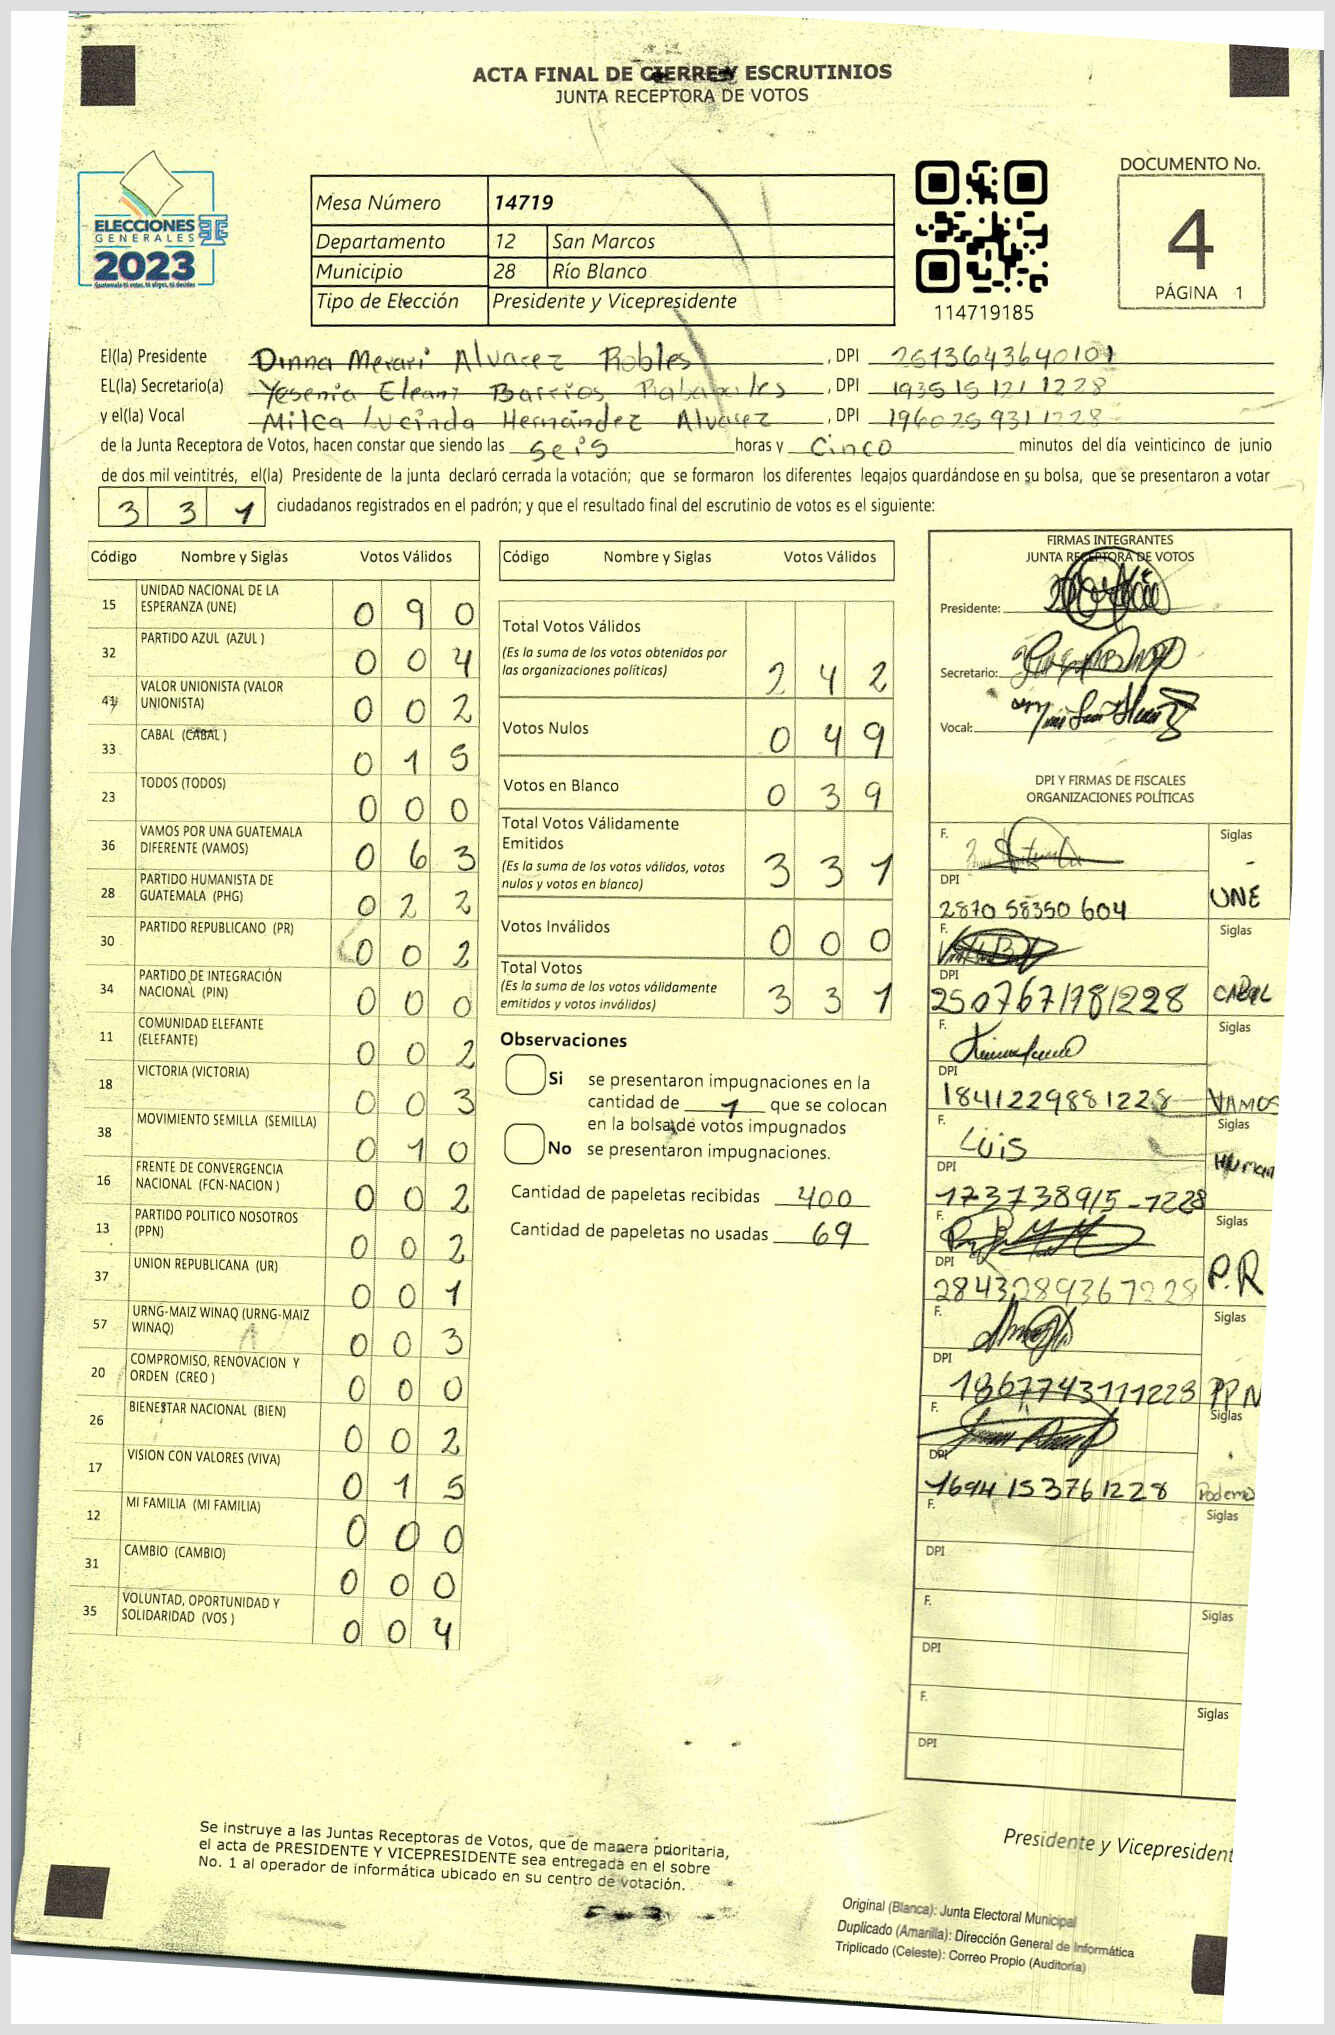 ACTA FINAL DE CIERRE Y ESCRUTINIOS
JUNTA RECEPTORA DE VOTOS
ELECCIONES
GENERALES
2023
Guatemala tú votas, tú eliges, tú decides
Mesa Número 14719
Departamento 12 San Marcos
Municipio 28 Río Blanco
Tipo de Elección Presidente y Vicepresidente
114719185
DOCUMENTO No.
4
PÁGINA 1
El(la) Presidente Dinna Merari Alvarez Robles, DPI 2613643640101
EL(la) Secretario(a) Yesenia Barrios, DPI 1935 15 121 1228
y el(la) Vocal Milca Lucinda Hernández Alvarez, DPI 1960259311228
de la Junta Receptora de Votos, hacen constar que siendo las seis horas y cinco minutos del día veinticinco de junio
de dos mil veintitrés, el(la) Presidente de la junta declaró cerrada la votación; que se formaron los diferentes legajos guardándose en su bolsa, que se presentaron a votar
3 3 1 ciudadanos registrados en el padrón; y que el resultado final del escrutinio de votos es el siguiente:
Código Nombre y Siglas Votos Válidos
15 UNIDAD NACIONAL DE LA
ESPERANZA (UNE) 0 9 0
32 PARTIDO AZUL (AZUL ) 0 0 4
41 VALOR UNIONISTA (VALOR
UNIONISTA) 0 0 2
33 CABAL (CABAL ) 0 1 5
23 TODOS (TODOS) 0 0 0
36 VAMOS POR UNA GUATEMALA
DIFERENTE (VAMOS) 0 6 3
28 PARTIDO HUMANISTA DE
GUATEMALA (PHG) 0 2 2
30 PARTIDO REPUBLICANO (PR) 0 0 2
34 PARTIDO DE INTEGRACIÓN
NACIONAL (PIN) 0 0 0
11 COMUNIDAD ELEFANTE
(ELEFANTE) 0 0 2
18 VICTORIA (VICTORIA) 0 0 3
38 MOVIMIENTO SEMILLA (SEMILLA) 0 1 0
16 FRENTE DE CONVERGENCIA
NACIONAL (FCN-NACION ) 0 0 2
13 PARTIDO POLITICO NOSOTROS
(PPN) 0 0 2
37 UNION REPUBLICANA (UR) 0 0 1
57 URNG-MAIZ WINAQ (URNG-MAIZ
WINAQ) 0 0 3
20 COMPROMISO, RENOVACION Y
ORDEN (CREO ) 0 0 0
26 BIENESTAR NACIONAL (BIEN) 0 0 2
17 VISION CON VALORES (VIVA) 0 1 5
12 MI FAMILIA (MI FAMILIA) 0 0 0
31 CAMBIO (CAMBIO) 0 0 0
35 VOLUNTAD, OPORTUNIDAD Y
SOLIDARIDAD (VOS ) 0 0 4
Código Nombre y Siglas Votos Válidos
Total Votos Válidos
(Es la suma de los votos obtenidos por
las organizaciones políticas) 2 4 2
Votos Nulos 0 4 9
Votos en Blanco 0 3 9
Total Votos Válidamente
Emitidos
(Es la suma de los votos válidos, votos
nulos y votos en blanco) 3 3 1
Votos Inválidos 0 0 0
Total Votos
(Es la suma de los votos válidamente
emitidos y votos inválidos) 3 3 1
Observaciones
Si se presentaron impugnaciones en la
cantidad de 1 que se colocan
en la bolsa de votos impugnados
No se presentaron impugnaciones.
Cantidad de papeletas recibidas 400
Cantidad de papeletas no usadas 69
FIRMAS INTEGRANTES
JUNTA RECEPTORA DE VOTOS
Presidente:
Secretario:
Vocal:
DPI Y FIRMAS DE FISCALES
ORGANIZACIONES POLÍTICAS
F. Siglas
DPI
2870 58350 604 UNE
F. Siglas
DPI
2507671981228 CABAL
F. Siglas
DPI
1841229881228 VAMOS
F. Luis Siglas
DPI Human
173738915-1228
F. Siglas
DPI
2843289367228 P.R
F. Siglas
DPI
1867743111228 PPN
F. Siglas
DPI
1694153761228 Podemos
F. Siglas
DPI
F. Siglas
DPI
F. Siglas
DPI
Se instruye a las Juntas Receptoras de Votos, que de manera prioritaria,
el acta de PRESIDENTE Y VICEPRESIDENTE sea entregada en el sobre
No. 1 al operador de informática ubicado en su centro de votación.
Presidente y Vicepresident
Original (Blanca): Junta Electoral Municipal
Duplicado (Amarilla): Dirección General de Informática
Triplicado (Celeste): Correo Propio (Auditoría)